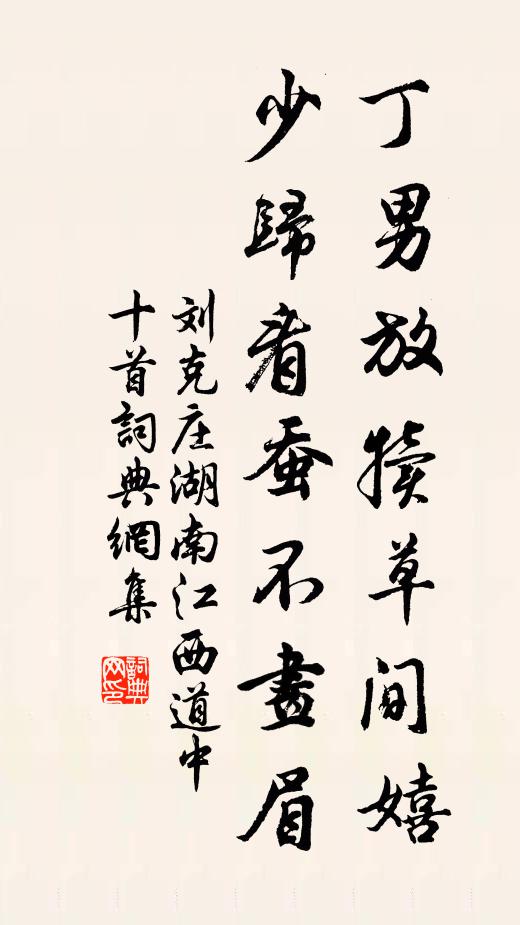 丁男放犢草间嬉
少歸看蚕不畫眉
刘克庄湖南江西道中
十首詞典網集
詞典
网印